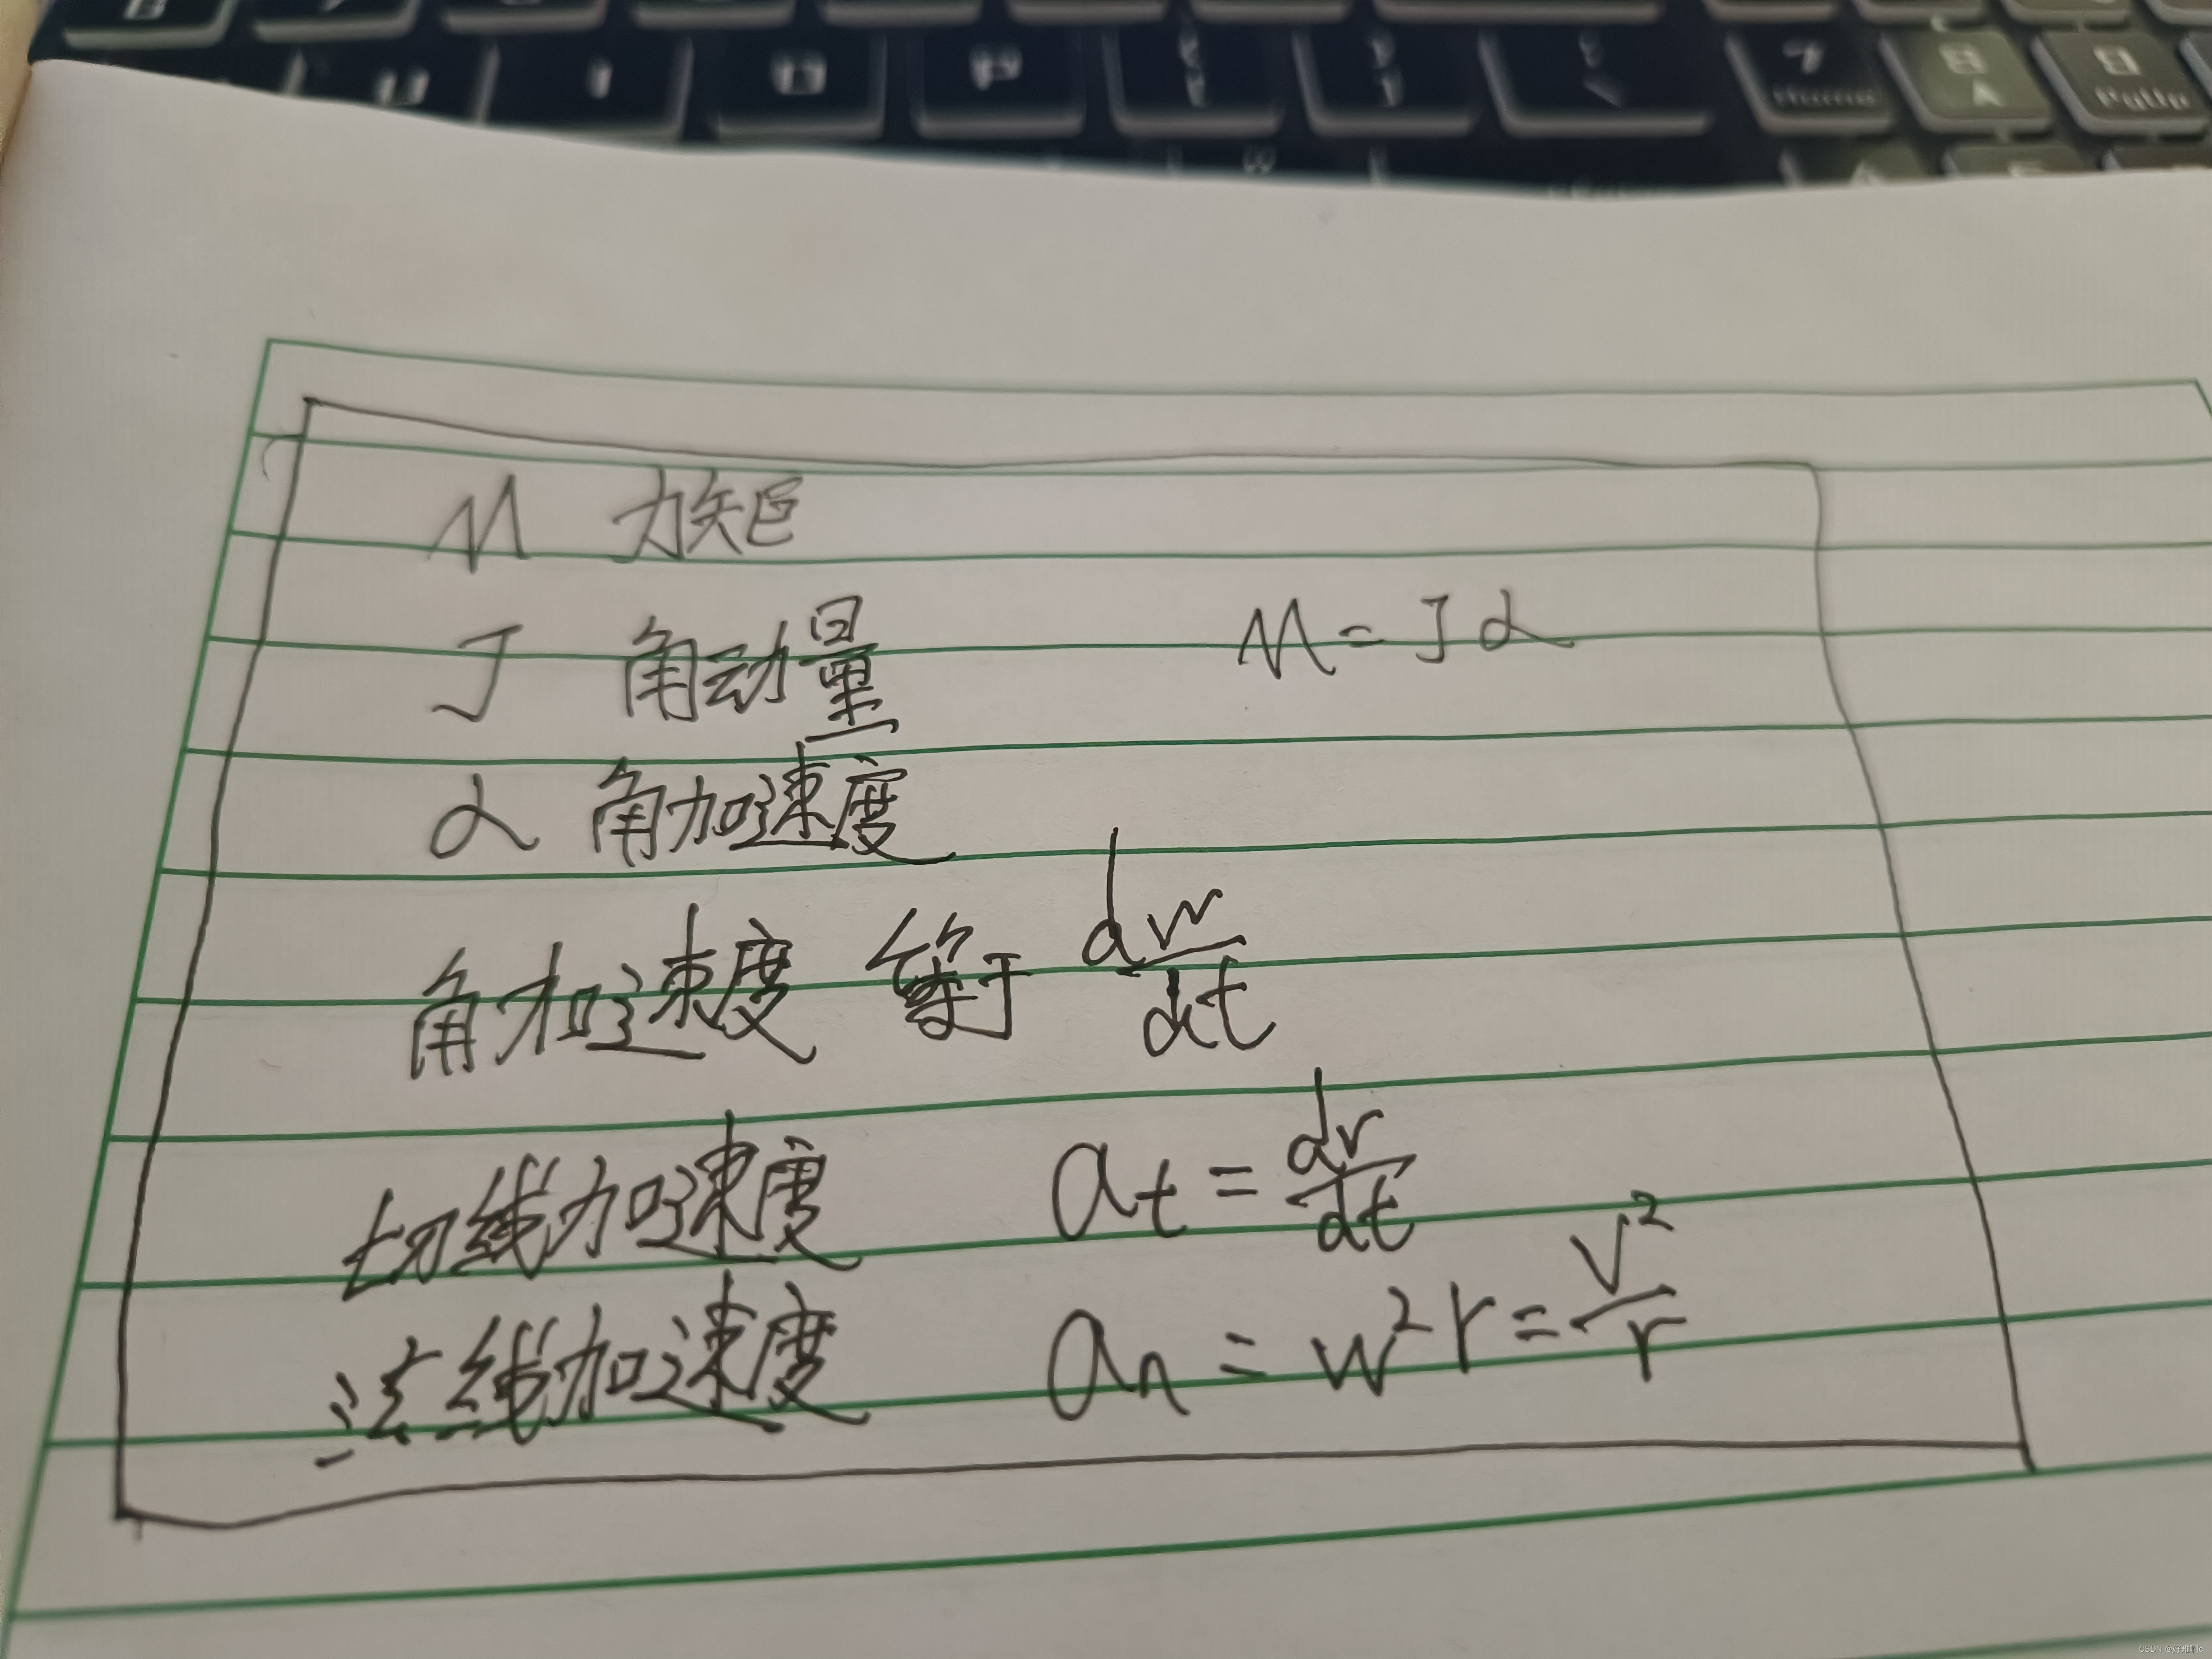 M 力矩
J 角动量 M=Jα
α 角加速度
角加速度 等于 dw/dt
切线加速度 at = dv/dt
法线加速度 an = w²r = v²/r